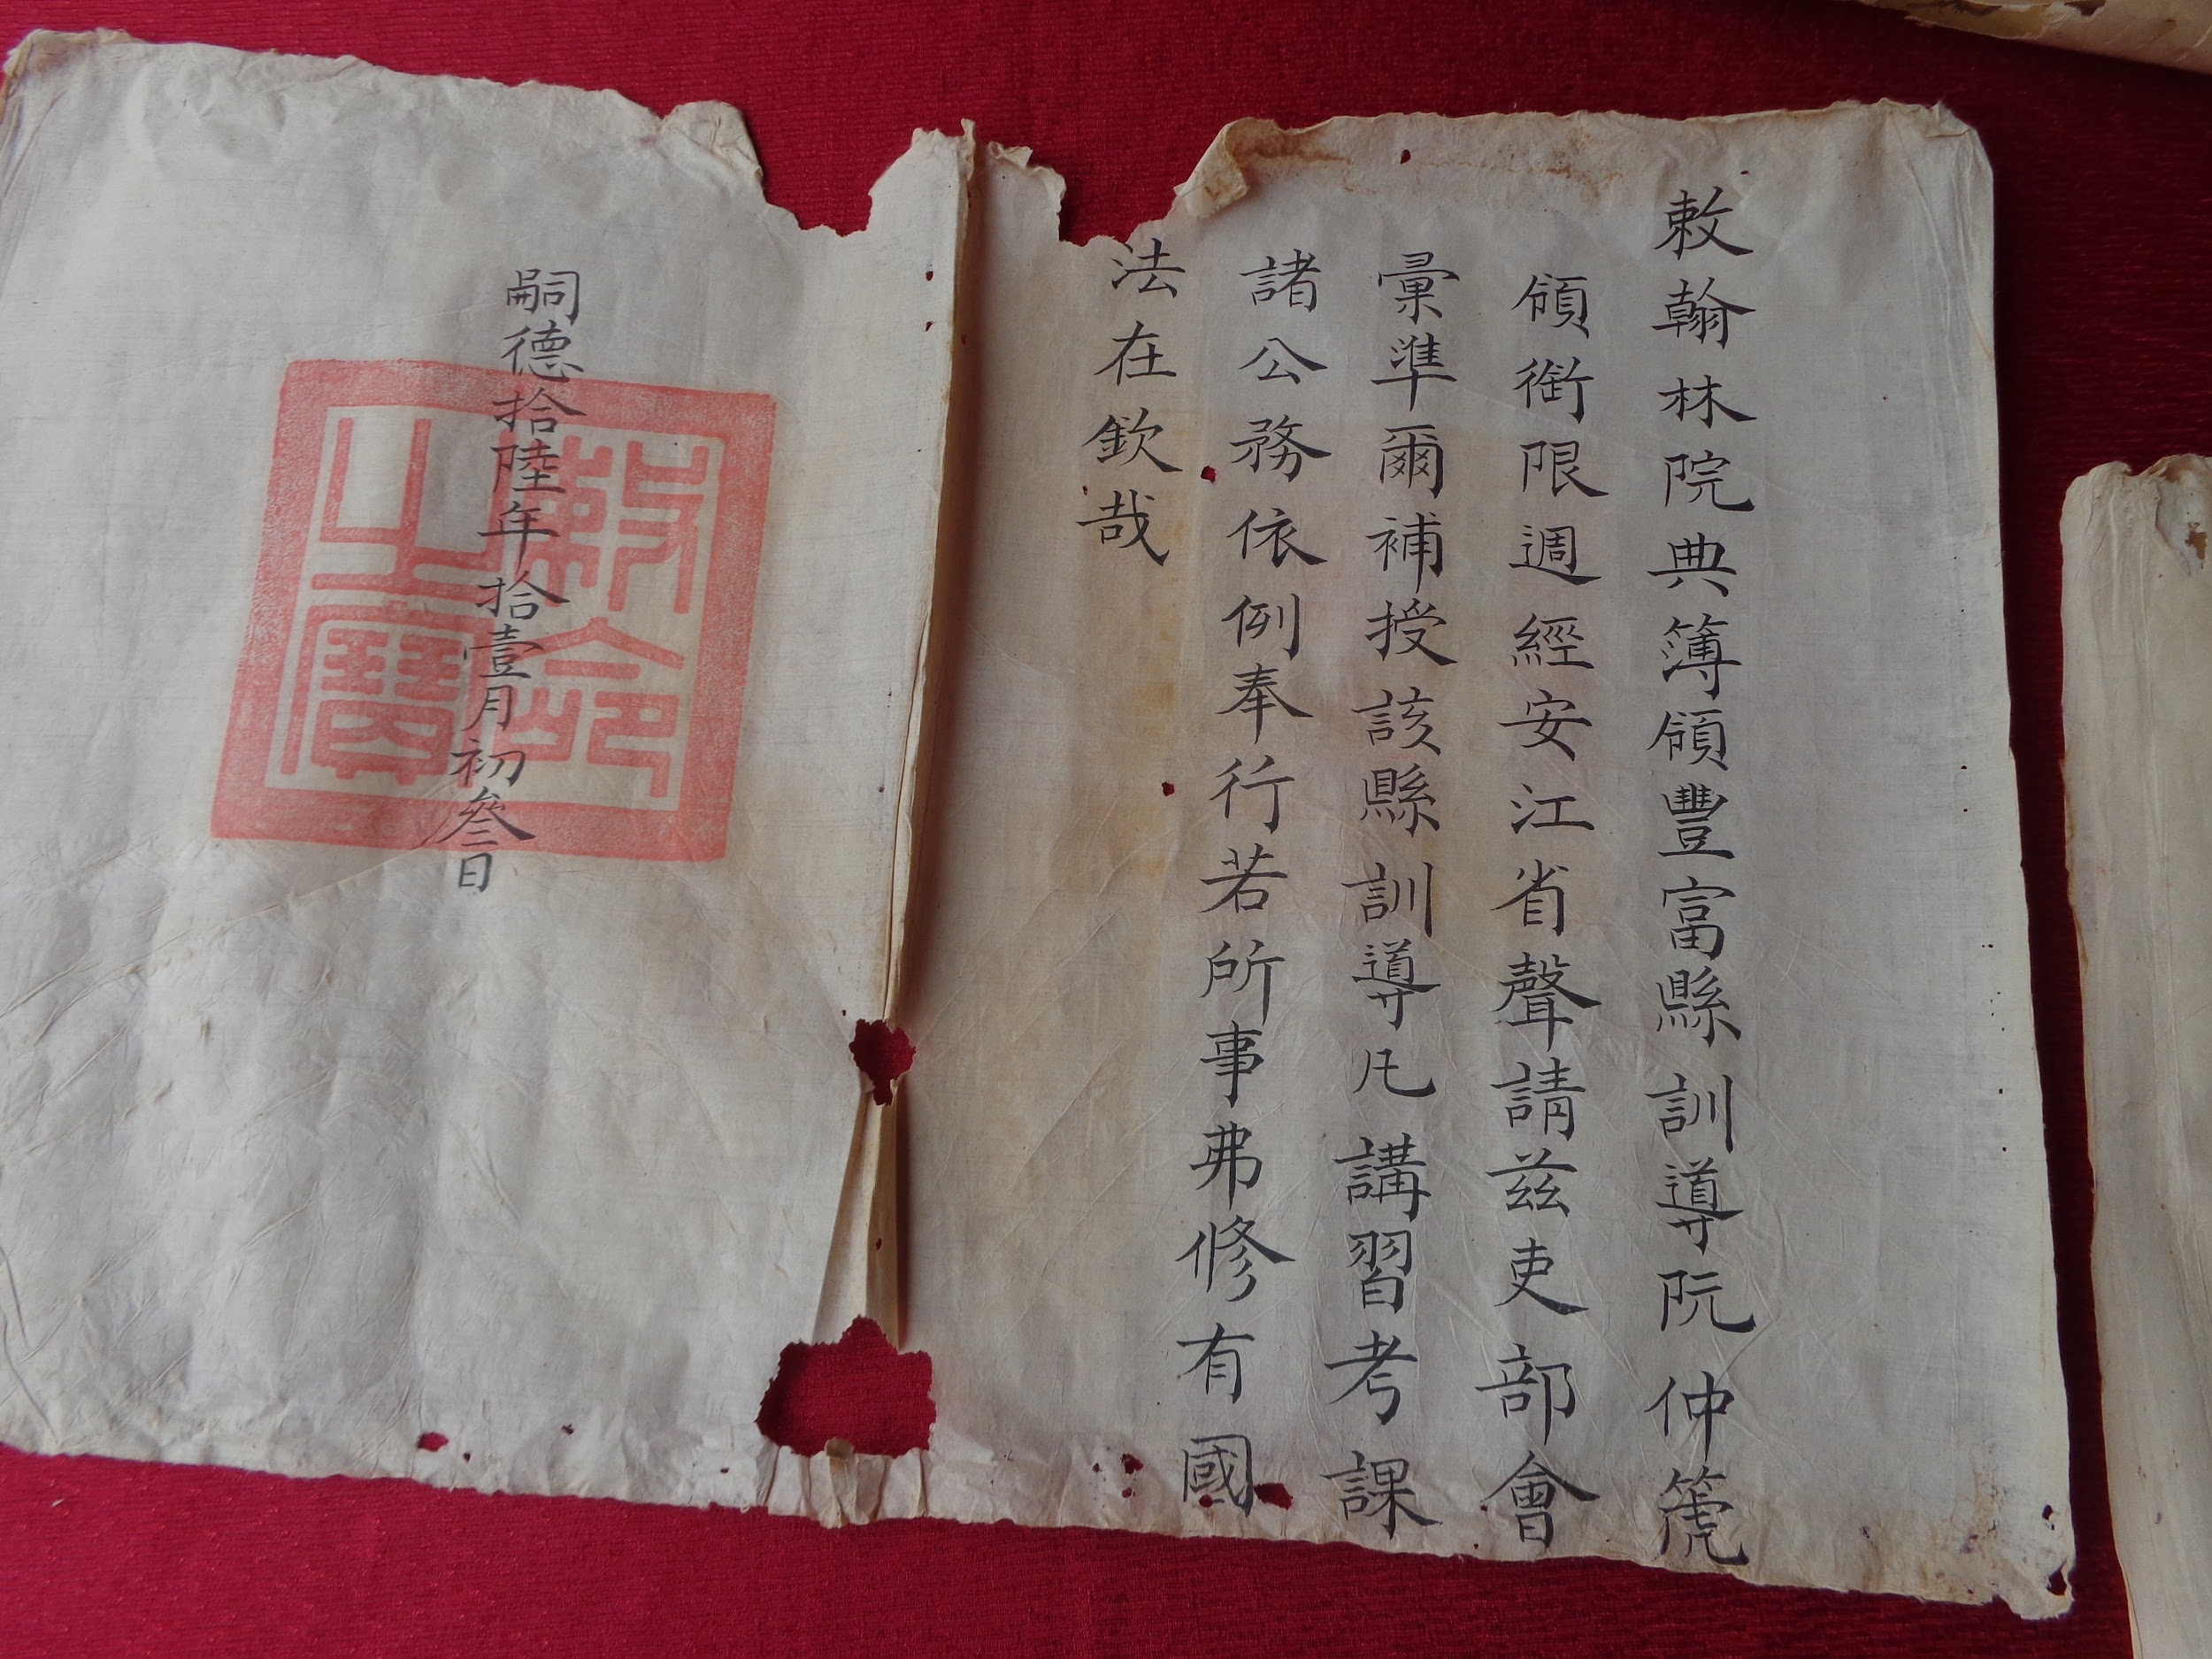 敕翰林院典簿領豐富縣訓導阮仲箎
領銜限週經安江省聲請茲吏部會
彙準爾補授該縣訓導凡講習考課
諸公務依例奉行若所事弗修有國
法在欽哉
嗣德拾陸年拾壹月初叄日
敕命之寶